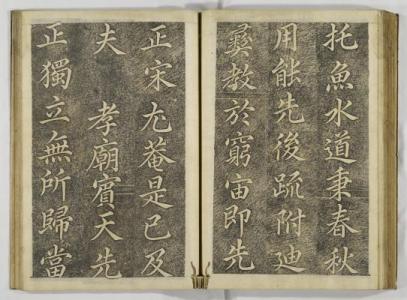 托魚水道秉春秋
用能先後疏附廸
彜教於窮宙即先
正宋尤菴是已及
夫　孝廟賓天先
正獨立無所歸當